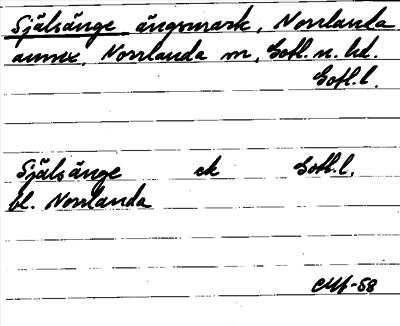 Själsänge ängsmark, Norrlanda
annex, Norrlanda m, Gotl. n. hd.
Gotl. l.
Själsänge ek Gotl. l.
bl. Norrlanda